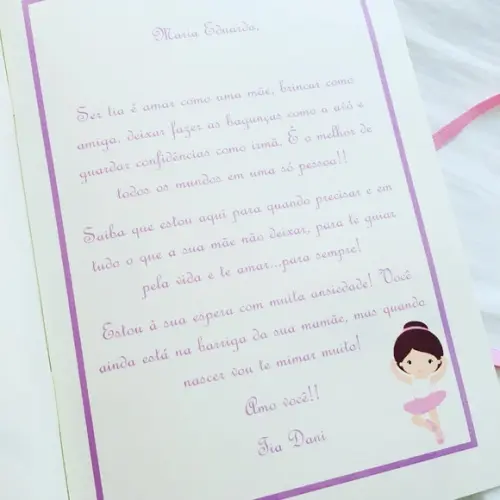 Maria Eduarda,
Ser tia é amar como uma mãe, brincar como
amiga, deixar fazer as bagunças como a avó e
guardar confidências como irmã. É o melhor de
todos os mundos em uma só pessoa!!
Saiba que estou aqui para quando precisar e em
tudo o que a sua mãe não deixar, para te guiar
pela vida e te amar...para sempre!
Estou à sua espera com muita ansiedade! Você
ainda está na barriga da sua mamãe, mas quando
nascer vou te mimar muito!
Amo você!!
Tia Dani